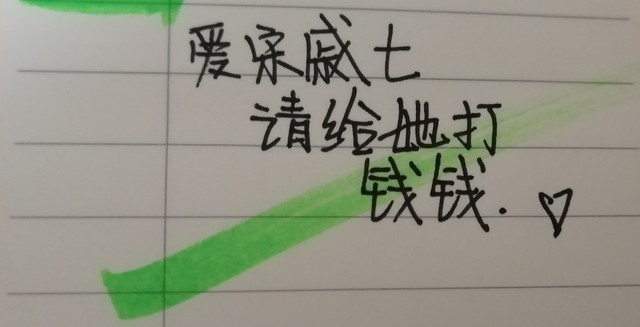 爱宋戚七
请给她打
钱钱.♡